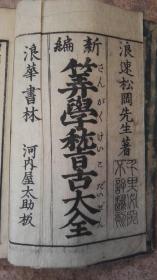 浪速松岡先生著
新編
算學稽古大全
さんがくけいこだいぜん
浪華書林 河内屋太助板
不許翻刻